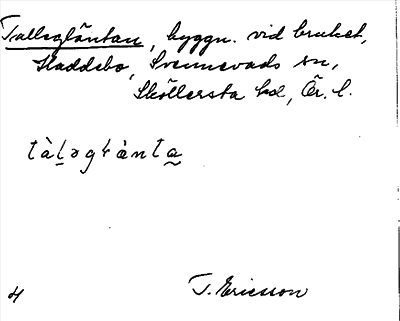 Tallegläntan, byggn. vid bruket,
Haddebo, Svennevads sn,
Sköllersta hd, Ör. l.
tàl̠əglànta̰
T. Ericson